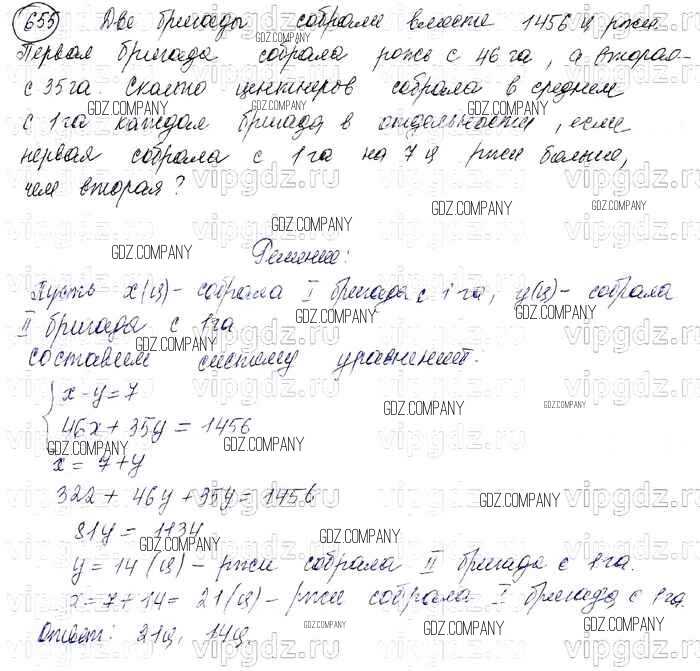 655 Две бригады собрали вместе 1456 ц ржи.
Первая бригада собрала рожь с 46 га, а вторая -
с 35 га. Сколько центнеров собрала в среднем
с 1 га каждая бригада в отдельности, если
первая собрала с 1 га на 7 ц ржи больше,
чем вторая?
Решение:
Пусть x(ц) - собрала I бригада с 1 га, y(ц) - собрала
II бригада с 1га
составим систему уравнений.
x - y = 7
46x + 35y = 1456
x = 7 + y
322 + 46y + 35y = 1456
81y = 1134
y = 14 (ц) - ржи собрала II бригада с 1 га.
x = 7 + 14 = 21 (ц) - ржи собрала I бригада с 1 га.
Ответ: 21ц, 14ц.
GDZ.COMPANY
vipgdz.ru